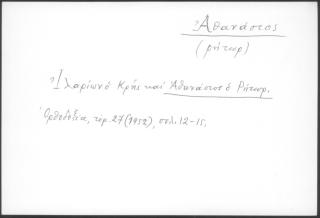 Ἀθανάσιος
(ρήτωρ)
Ἱλαρίων ὁ Κρής καὶ Ἀθανάσιος ὁ Ρήτωρ.
Ὀρθοδοξία, τόμ. 27 (1952), σελ. 12-15.